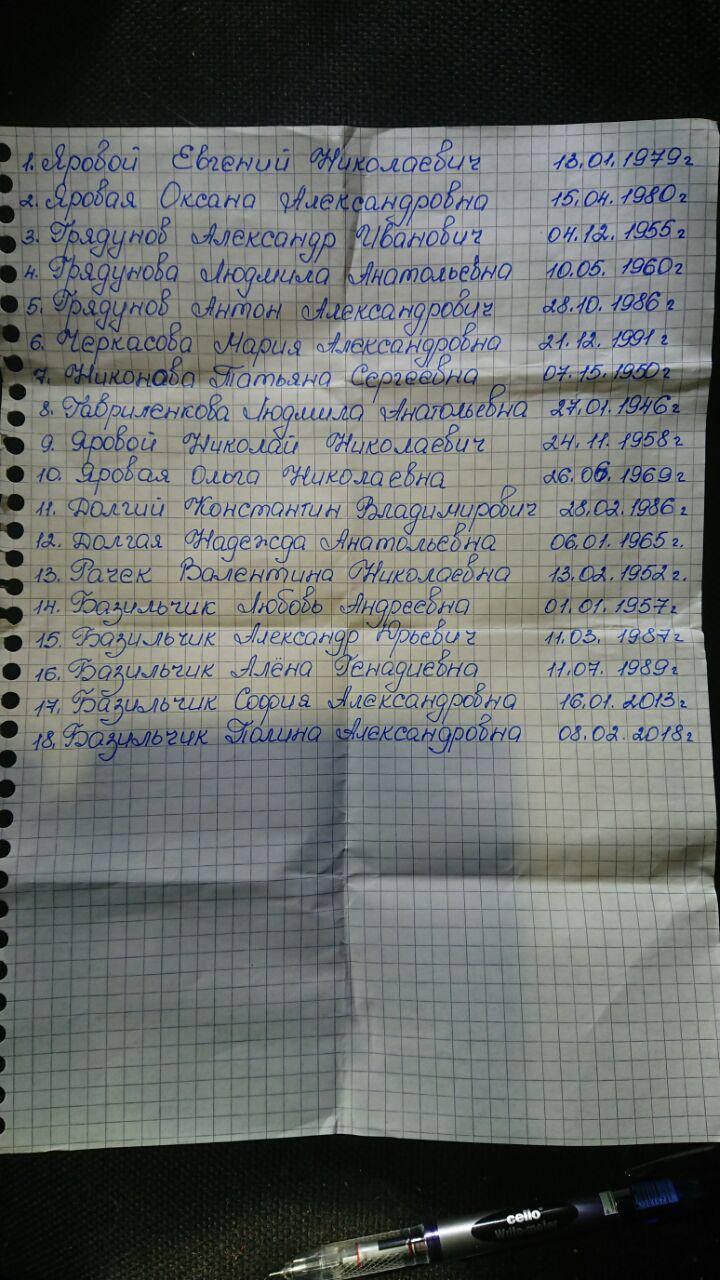 1. Яровой Евгений Николаевич 13.01.1979г
2. Яровая Оксана Александровна 15.04.1980г
3. Грядунов Александр Иванович 04.12.1955г
4. Грядунова Людмила Анатольевна 10.05.1960г
5. Грядунов Антон Александрович 28.10.1986г
6. Черкасова Мария Александровна 21.12.1991г
7. Никонова Татьяна Сергеевна 07.15.1950г
8. Гавриленкова Людмила Анатольевна 27.01.1946г
9. Яровой Николай Николаевич 24.11.1958г
10. Яровая Ольга Николаевна 26.06.1969г
11. Долгий Константин Владимирович 28.02.1986г
12. Долгая Надежда Анатольевна 06.01.1965г.
13. Рачек Валентина Николаевна 13.02.1952г.
14. Базильчик Любовь Андреевна 01.01.1957г
15. Базильчик Александр Юрьевич 11.03.1987г
16. Базильчик Алена Генадиевна 11.07.1989г
17. Базильчик София Александровна 16.01.2013г
18. Базильчик Полина Александровна 08.02.2018г
cello
Write-meter